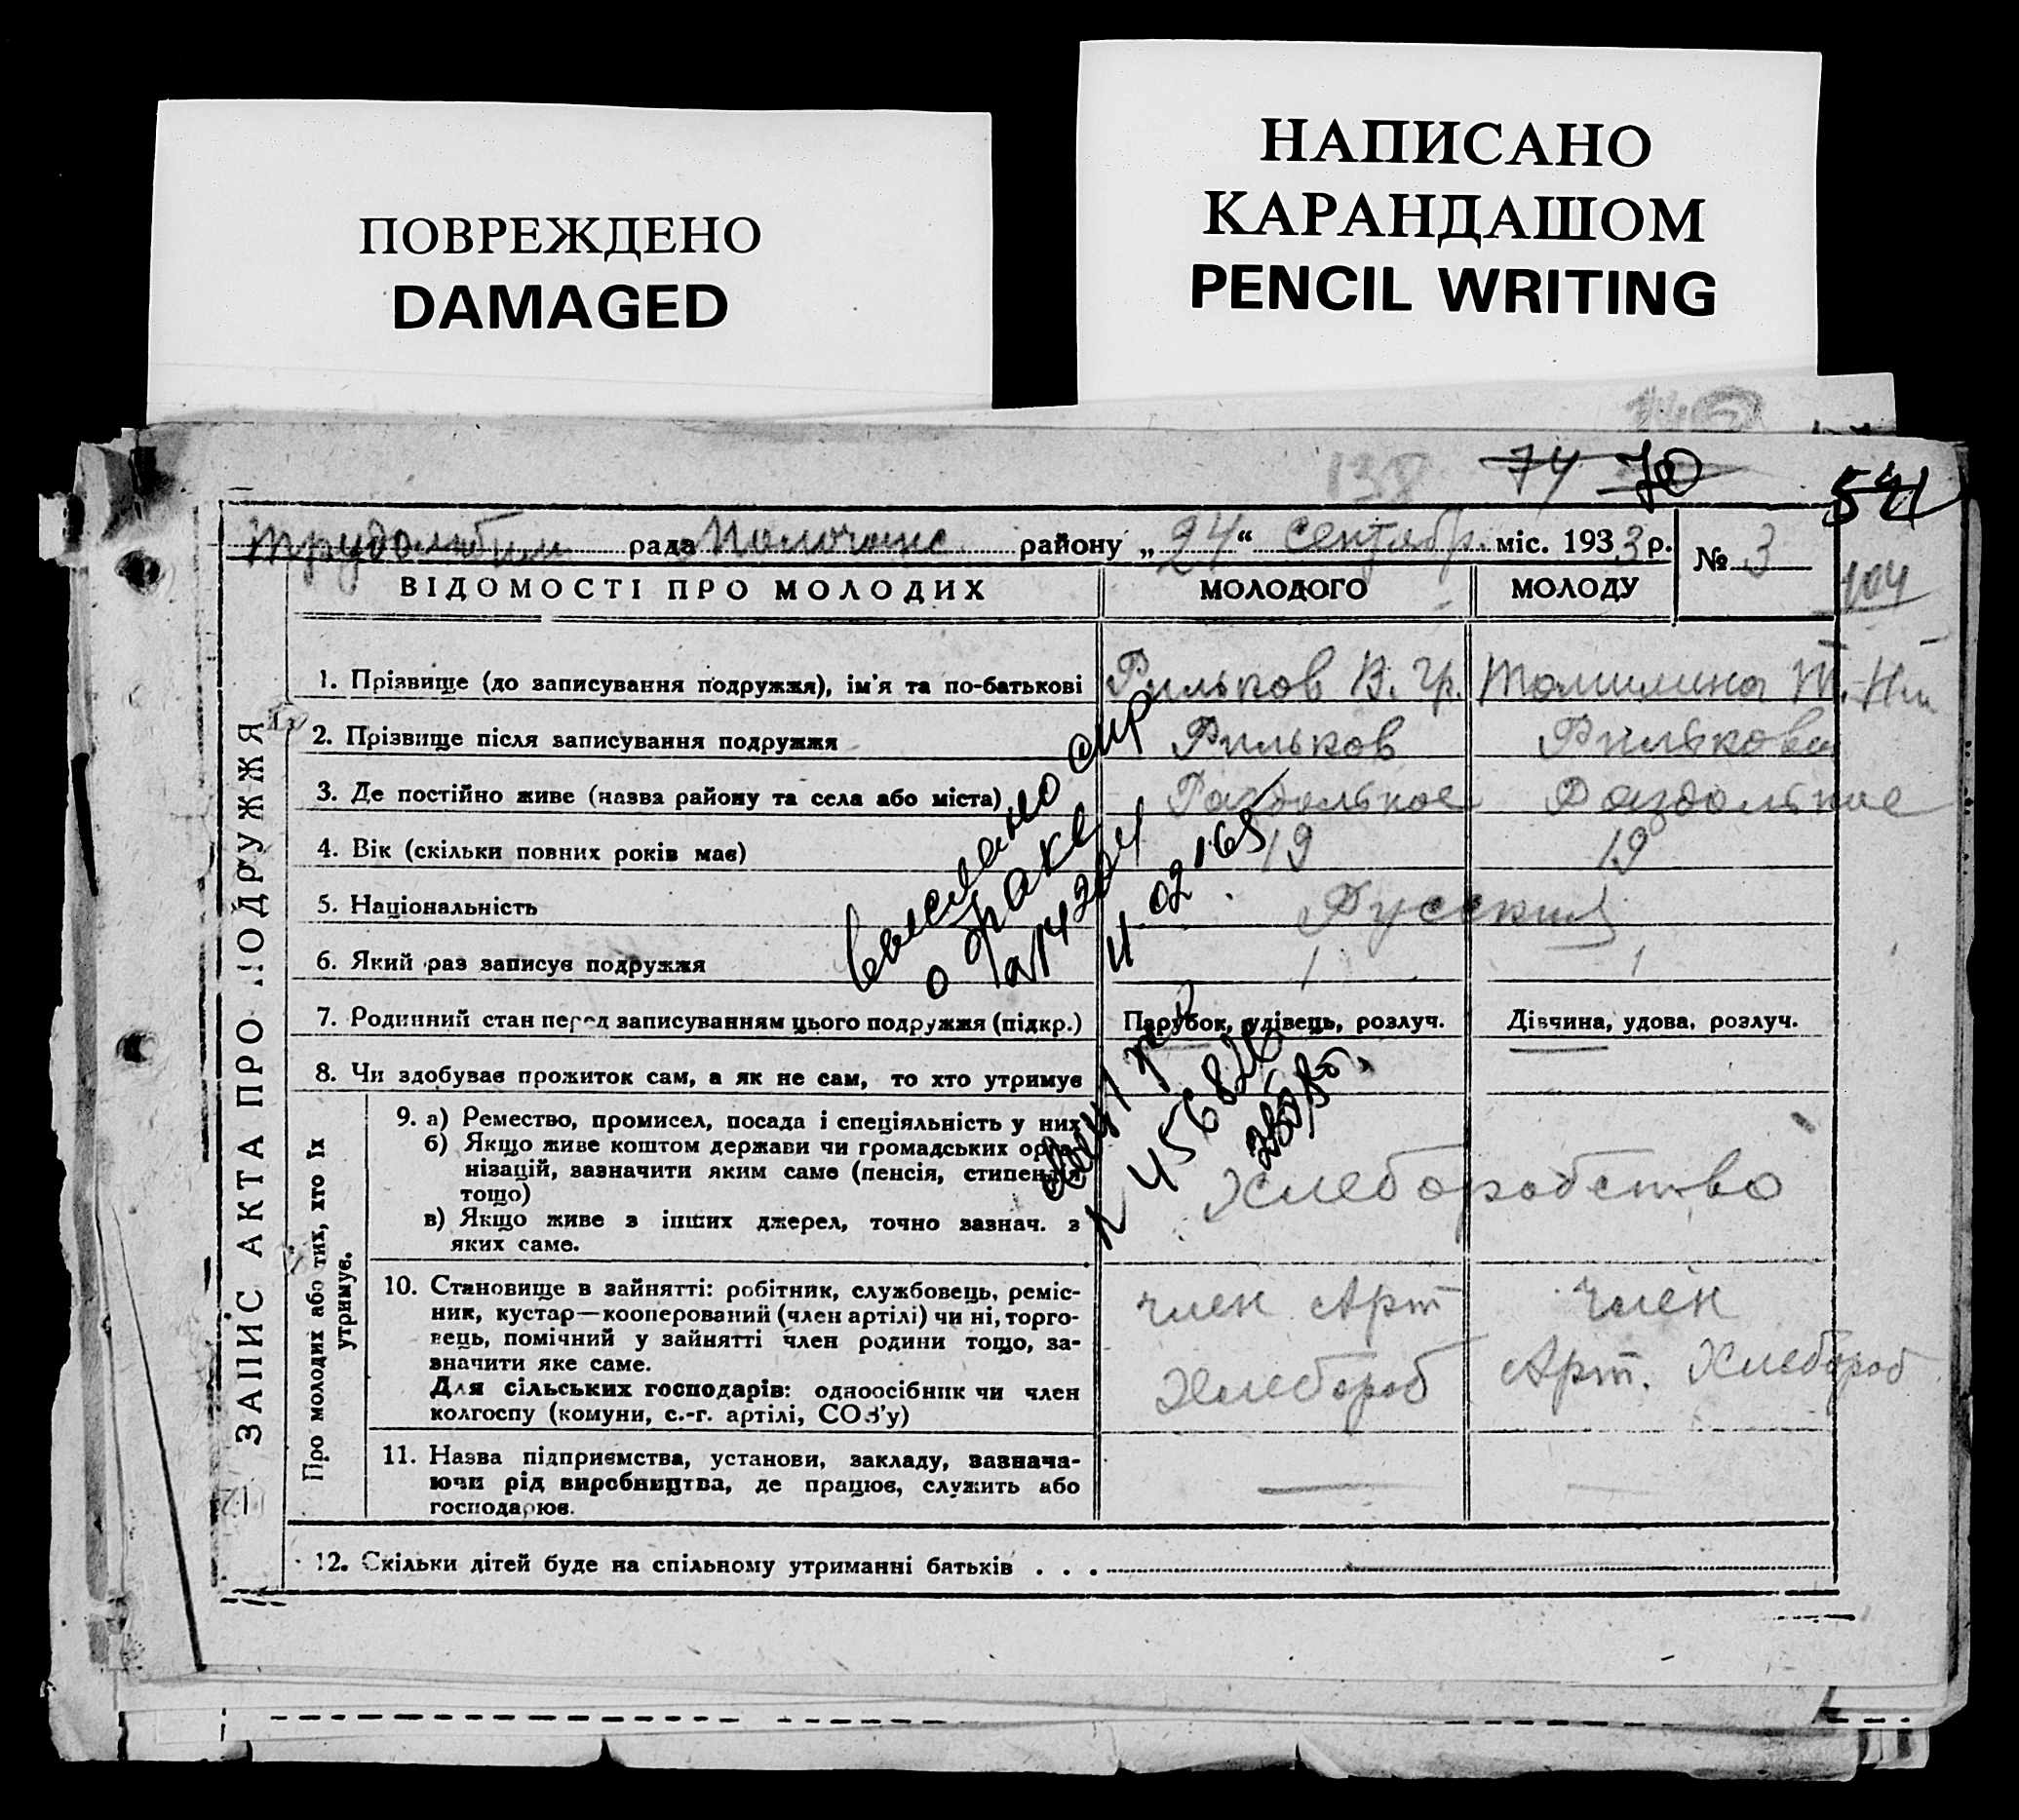 ПОВРЕЖДЕНО
DAMAGED
НАПИСАНО
КАРАНДАШОМ
PENCIL WRITING
138 74 70 541
рада района району „24“ сентябр. міс. 1933 р. № 3
104
ВІДОМОСТІ ПРО МОЛОДИХ МОЛОДОГО МОЛОДУ
ЗАПИС АКТА ПРО ПОДРУЖЖЯ
1. Прізвище (до записування подружжя), ім'я та по-батькові Рильков В. Гр. Томилина Т. Ни
2. Прізвище після записування подружжя Рильков Рилькова
3. Де постійно живе (назва району та села або міста) Раздольное Раздольное
4. Вік (скільки повних років має) 19 19
5. Національність Русские
6. Який раз записує подружжя 1 1
7. Родинний стан перед записуванням цього подружжя (підкр.) Парубок, удівець, розлуч. Дівчина, удова, розлуч.
8. Чи здобуває прожиток сам, а як не сам, то хто утримує
Про молодих або тих, хто їх утримує.
9. а) Ремество, промисел, посада і спеціяльність у них
б) Якщо живе коштом держави чи громадських орга-
нізацій, зазначити яким саме (пенсія, стипендія
тощо)
в) Якщо живе з інших джерел, точно зазнач. з
яких саме.
Хлеборобство
10. Становище в зайнятті: робітник, службовець, реміс-
ник, кустар—кооперований (член артілі) чи ні, торго-
вець, помічний у зайнятті член родини тощо, за-
значити яке саме.
Для сільських господарів: одноосібник чи член
колгоспу (комуни, с.-г. артілі, СОЗ'у)
член Арт член
Хлебороб Арт. Хлебороб
11. Назва підприємства, установи, закладу, зазнача-
ючи рід виробництва, де працює, служить або
господарює.
12. Скільки дітей буде на спільному утриманні батьків . . .
о браке
456826